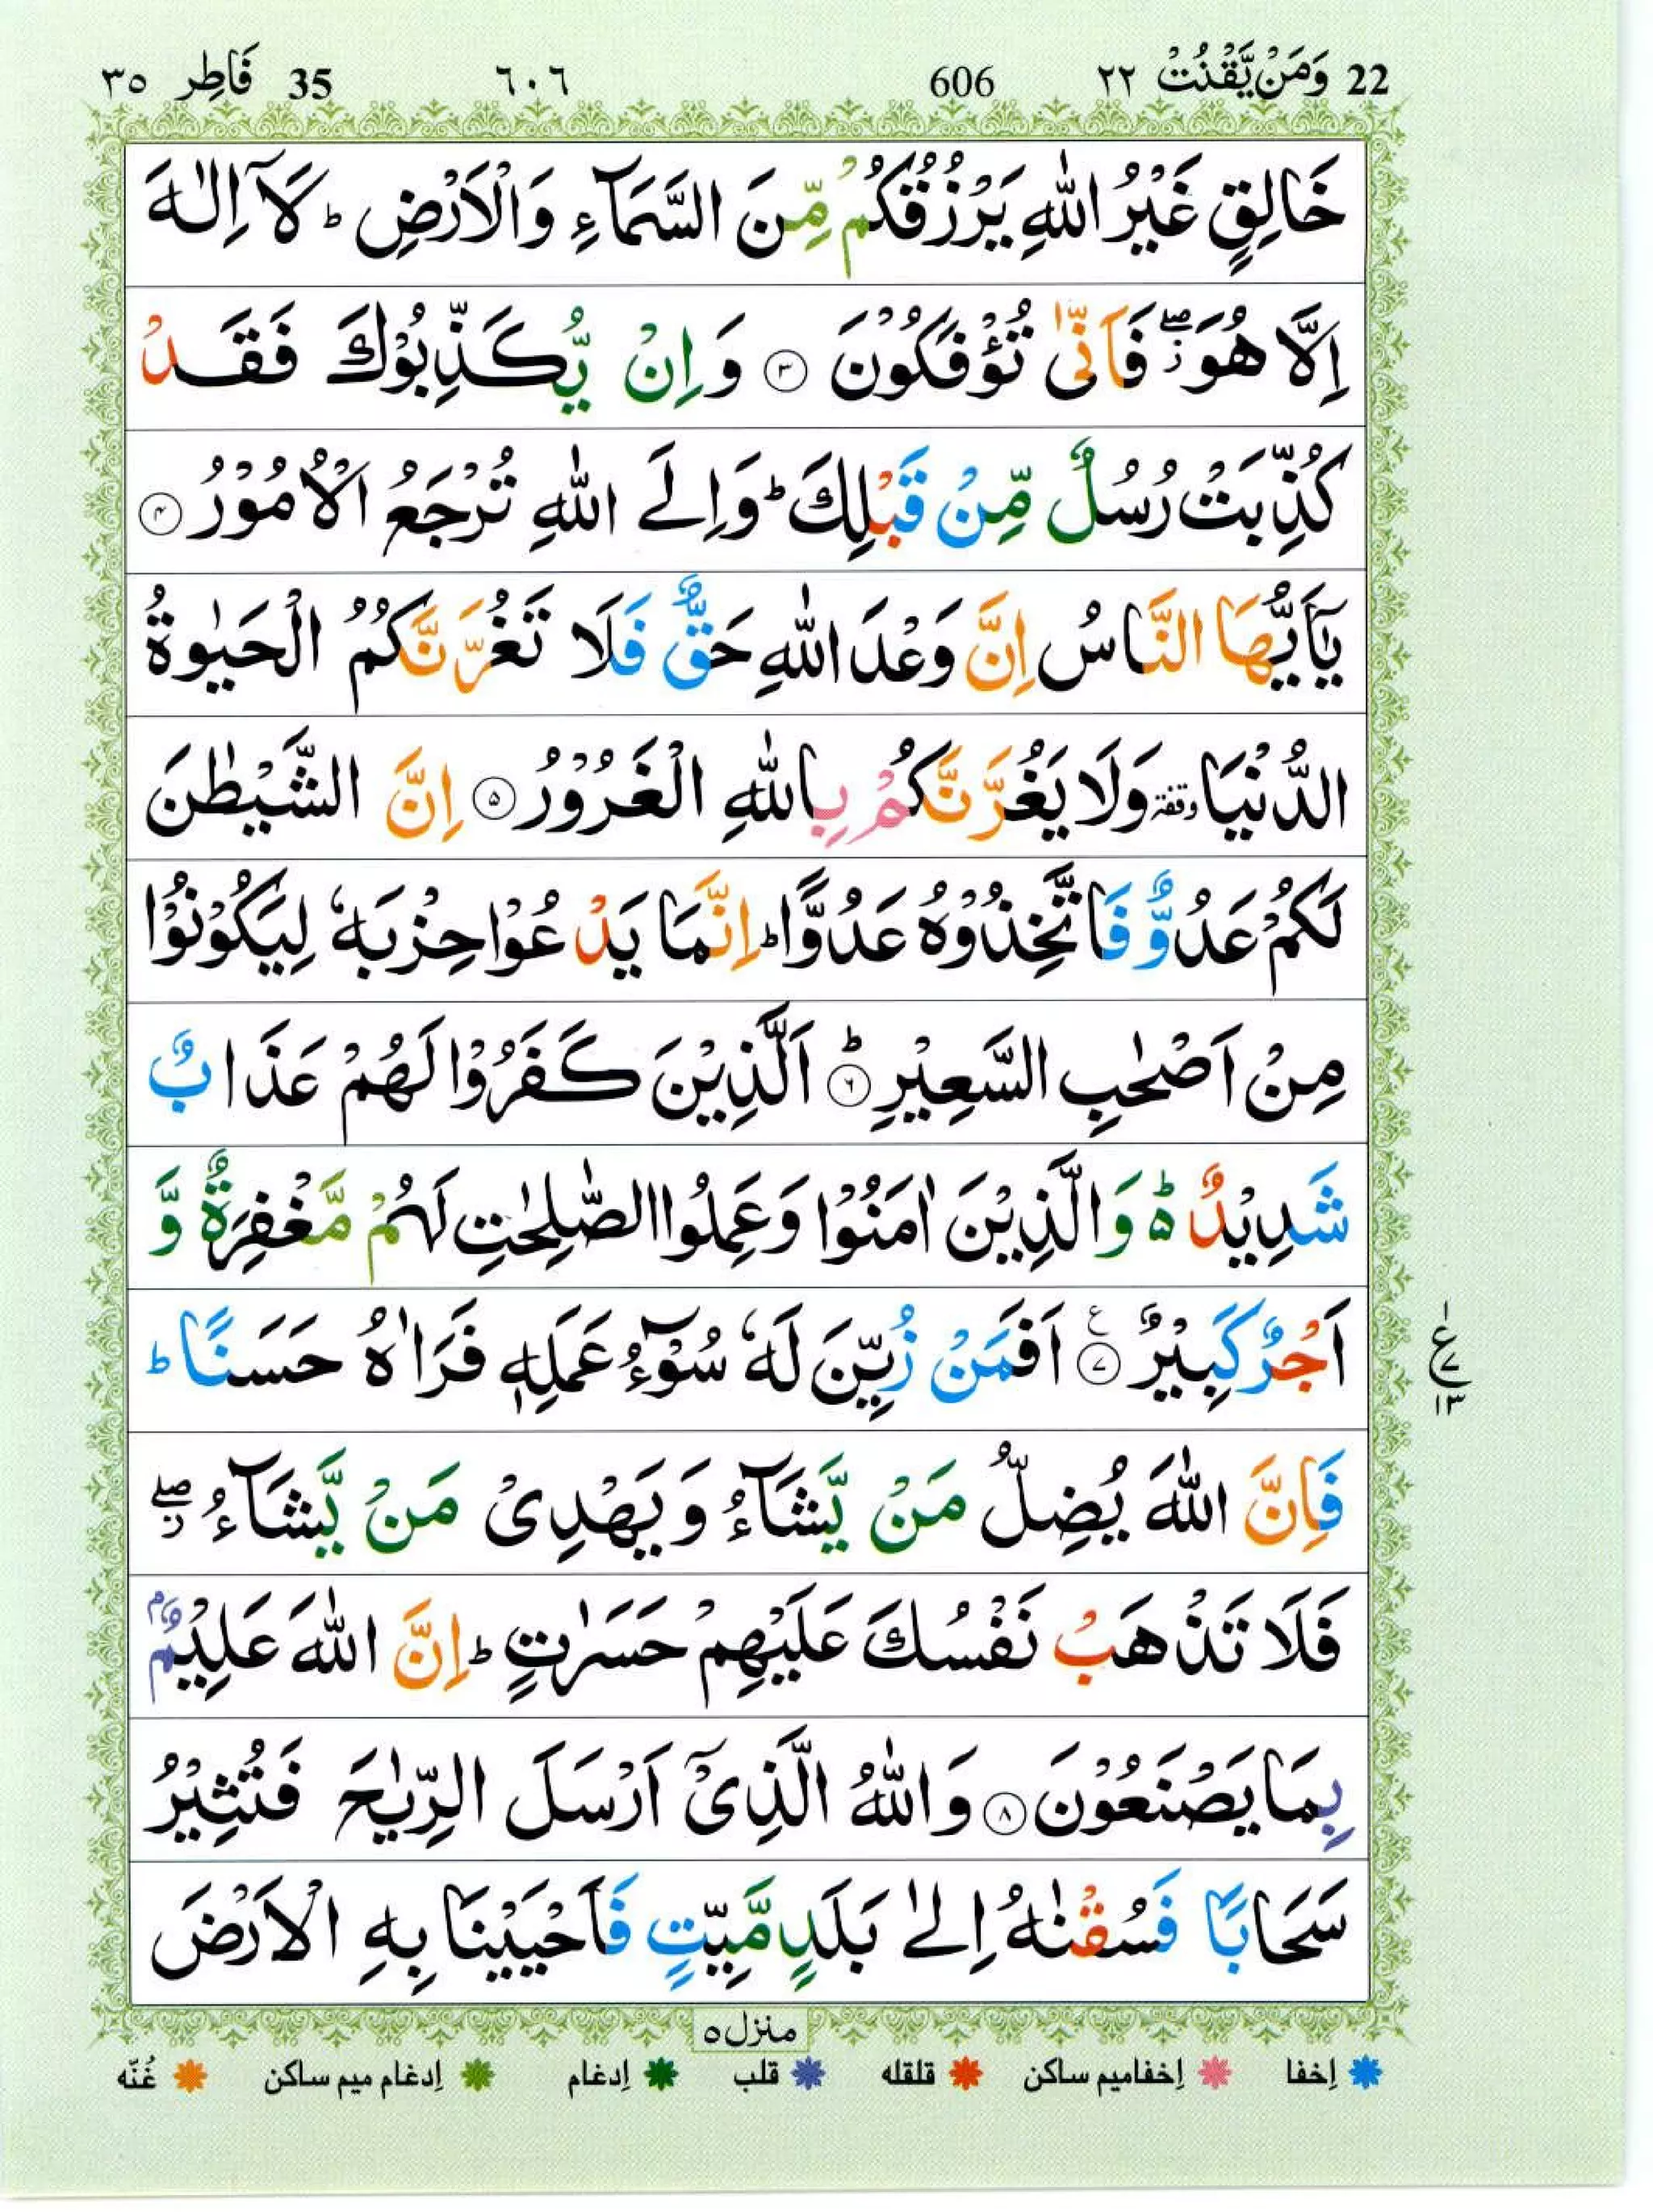 22 وَمَنْ يَّقْنُتْ ٢٢ 606 ٦٠٦ 35 فَاطِر ٣٥
خَالِقٍ غَيْرُ اللّٰهِ يَرْزُقُكُمْ مِّنَ السَّمَآءِ وَالْاَرْضِ ؕ لَآ اِلٰهَ
اِلَّا هُوَ ۖؗ فَاَنّٰى تُؤْفَكُوْنَ ۝۳ وَاِنْ يُّكَذِّبُوْكَ فَقَدْ
كُذِّبَتْ رُسُلٌ مِّنْ قَبْلِكَ ؕ وَاِلَى اللّٰهِ تُرْجَعُ الْاُمُوْرُ ۝۴
يٰۤاَيُّهَا النَّاسُ اِنَّ وَعْدَ اللّٰهِ حَقٌّ فَلَا تَغُرَّنَّكُمُ الْحَيٰوةُ
الدُّنْيَا وقفة وَلَا يَغُرَّنَّكُمْ بِاللّٰهِ الْغَرُوْرُ ۝۵ اِنَّ الشَّيْطٰنَ
لَكُمْ عَدُوٌّ فَاتَّخِذُوْهُ عَدُوًّا ؕ اِنَّمَا يَدْعُوْا حِزْبَهٗ لِيَكُوْنُوْا
مِنْ اَصْحٰبِ السَّعِيْرِ ۝۶ؕ اَلَّذِيْنَ كَفَرُوْا لَهُمْ عَذَابٌ
شَدِيْدٌ ۵ؕ وَالَّذِيْنَ اٰمَنُوْا وَعَمِلُوا الصّٰلِحٰتِ لَهُمْ مَّغْفِرَةٌ وَّ
اَجْرٌ كَبِيْرٌ ۝۷ ع اَفَمَنْ زُيِّنَ لَهٗ سُوْٓءُ عَمَلِهٖ فَرَاٰهُ حَسَنًا ؕ
ع ۱ ۷ ۱۳
فَاِنَّ اللّٰهَ يُضِلُّ مَنْ يَّشَآءُ وَيَهْدِىْ مَنْ يَّشَآءُ ۖؗ
فَلَا تَذْهَبْ نَفْسُكَ عَلَيْهِمْ حَسَرٰتٍ ؕ اِنَّ اللّٰهَ عَلِيْمٌۢ
بِمَا يَصْنَعُوْنَ ۝۸ وَاللّٰهُ الَّذِىْٓ اَرْسَلَ الرِّيٰحَ فَتُثِيْرُ
سَحَابًا فَسُقْنٰهُ اِلٰى بَلَدٍ مَّيِّتٍ فَاَحْيَيْنَا بِهِ الْاَرْضَ
منزل ۵
إخفا إخفاميم ساكن قلقله قلب إدغام إدغام ميم ساكن غُنّه